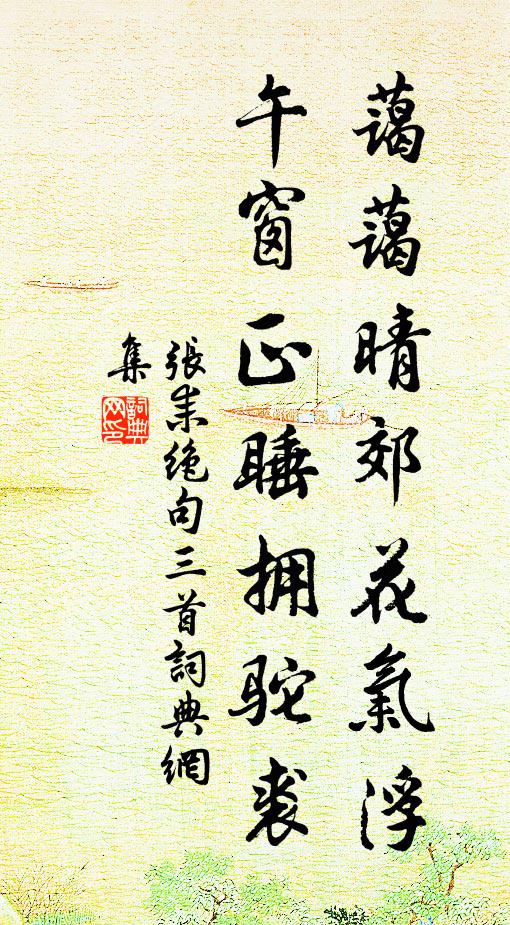 藹藹晴郊花氣浮
午窗正睡拥駝裘
張耒絶句三首詞典網
集
詞典
网印